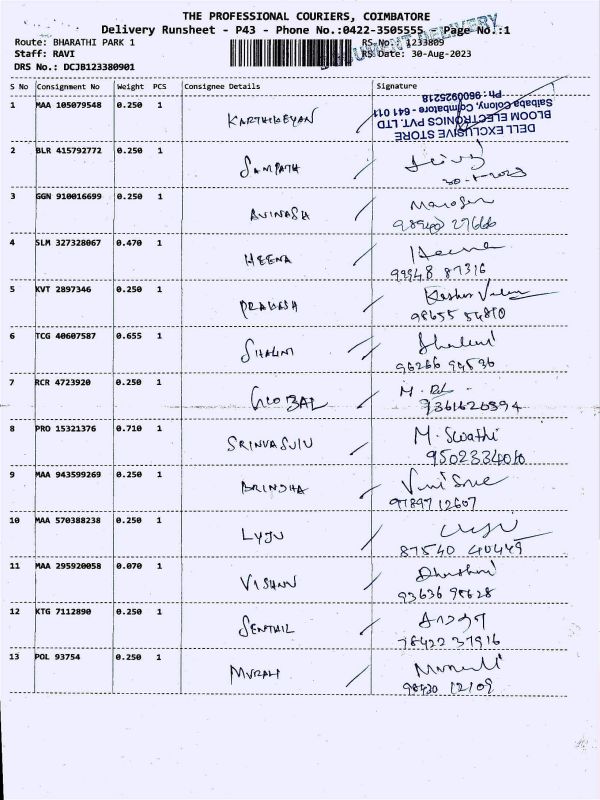 THE PROFESSIONAL COURIERS, COIMBATORE
Delivery Runsheet - P43 - Phone No.:0422-3505555 Page No.:1
Route: BHARATHI PARK 1 RS No.: 1233809
Staff: RAVI RS Date: 30-Aug-2023
DRS No.: DCJB123380901
DELIVERY
S No Consignment No Weight PCS Consignee Details Signature
1 MAA 105079548 0.250 1 KARTHIKEYAN
DELL EXCLUSIVE STORE
BLOOM ELECTRONICS PVT. LTD
Saibaba Colony, Coimbatore - 641 011
Ph : 9600925218
2 BLR 415792772 0.250 1 SAMPATH
3 GGN 910016699 0.250 1 AVINASH
98940 27666
4 SLM 327328067 0.470 1 HEENA Heena
99948 87316
5 KVT 2897346 0.250 1 PRAKASH
98655 54810
6 TCG 40607587 0.655 1 SHALINI Shalini
7 RCR 4723920 0.250 1 GLOBAL
9361620394
8 PRO 15321376 0.710 1 SRINVASULU M. Swathi
9502334010
9 MAA 943599269 0.250 1 BRINDHA
97897 12607
10 MAA 570388238 0.250 1 LYJU
87540 40449
11 MAA 295920058 0.070 1 VISHNU Dharshini
93636 98628
12 KTG 7112890 0.250 1 SENTHIL
78422 37916
13 POL 93754 0.250 1 MURALI
98430 12109